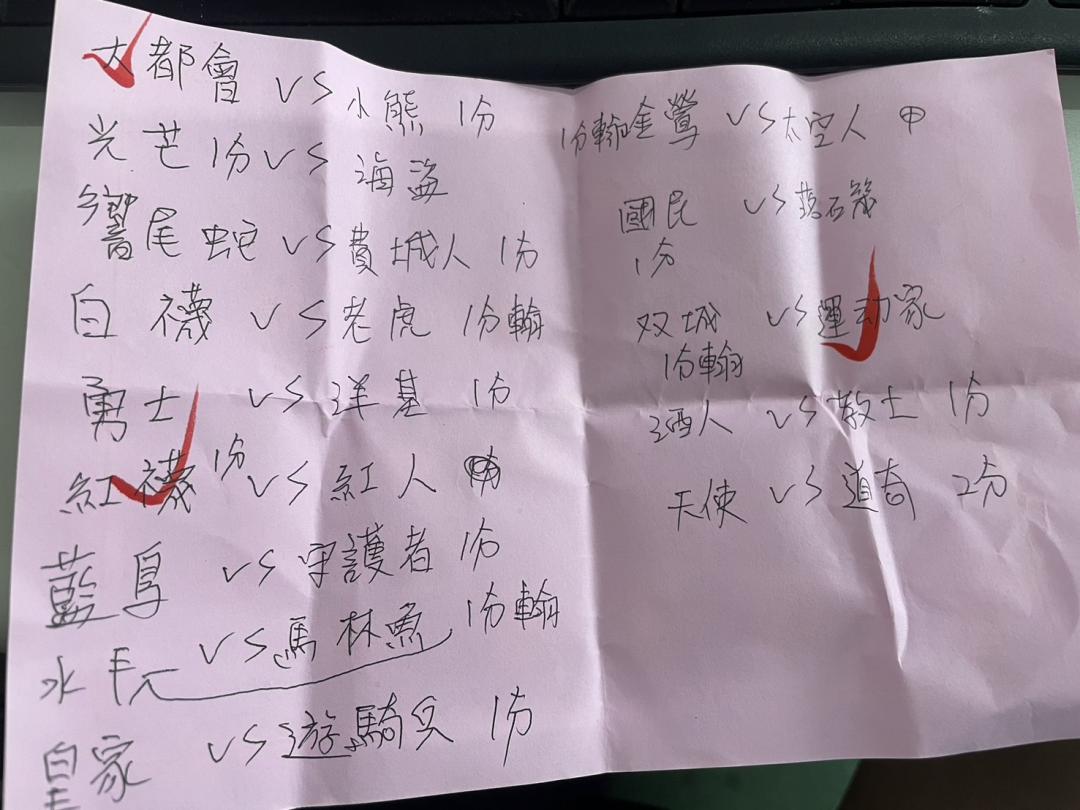 大都會 VS 小熊 1分
光芒 1分 VS 海盜
響尾蛇 VS 費城人 1分
白襪 VS 老虎 1分輸
勇士 VS 洋基 1分
紅襪 1分 VS 紅人
藍鳥 VS 守護者 1分
水手 VS 馬林魚 1分輸
皇家 VS 遊騎兵 1分
1分輸 金鶯 VS 太空人
國民 VS 落石磯
1分
双城 VS 運动家
1分輸
酒人 VS 教士 1分
天使 VS 道奇 2分